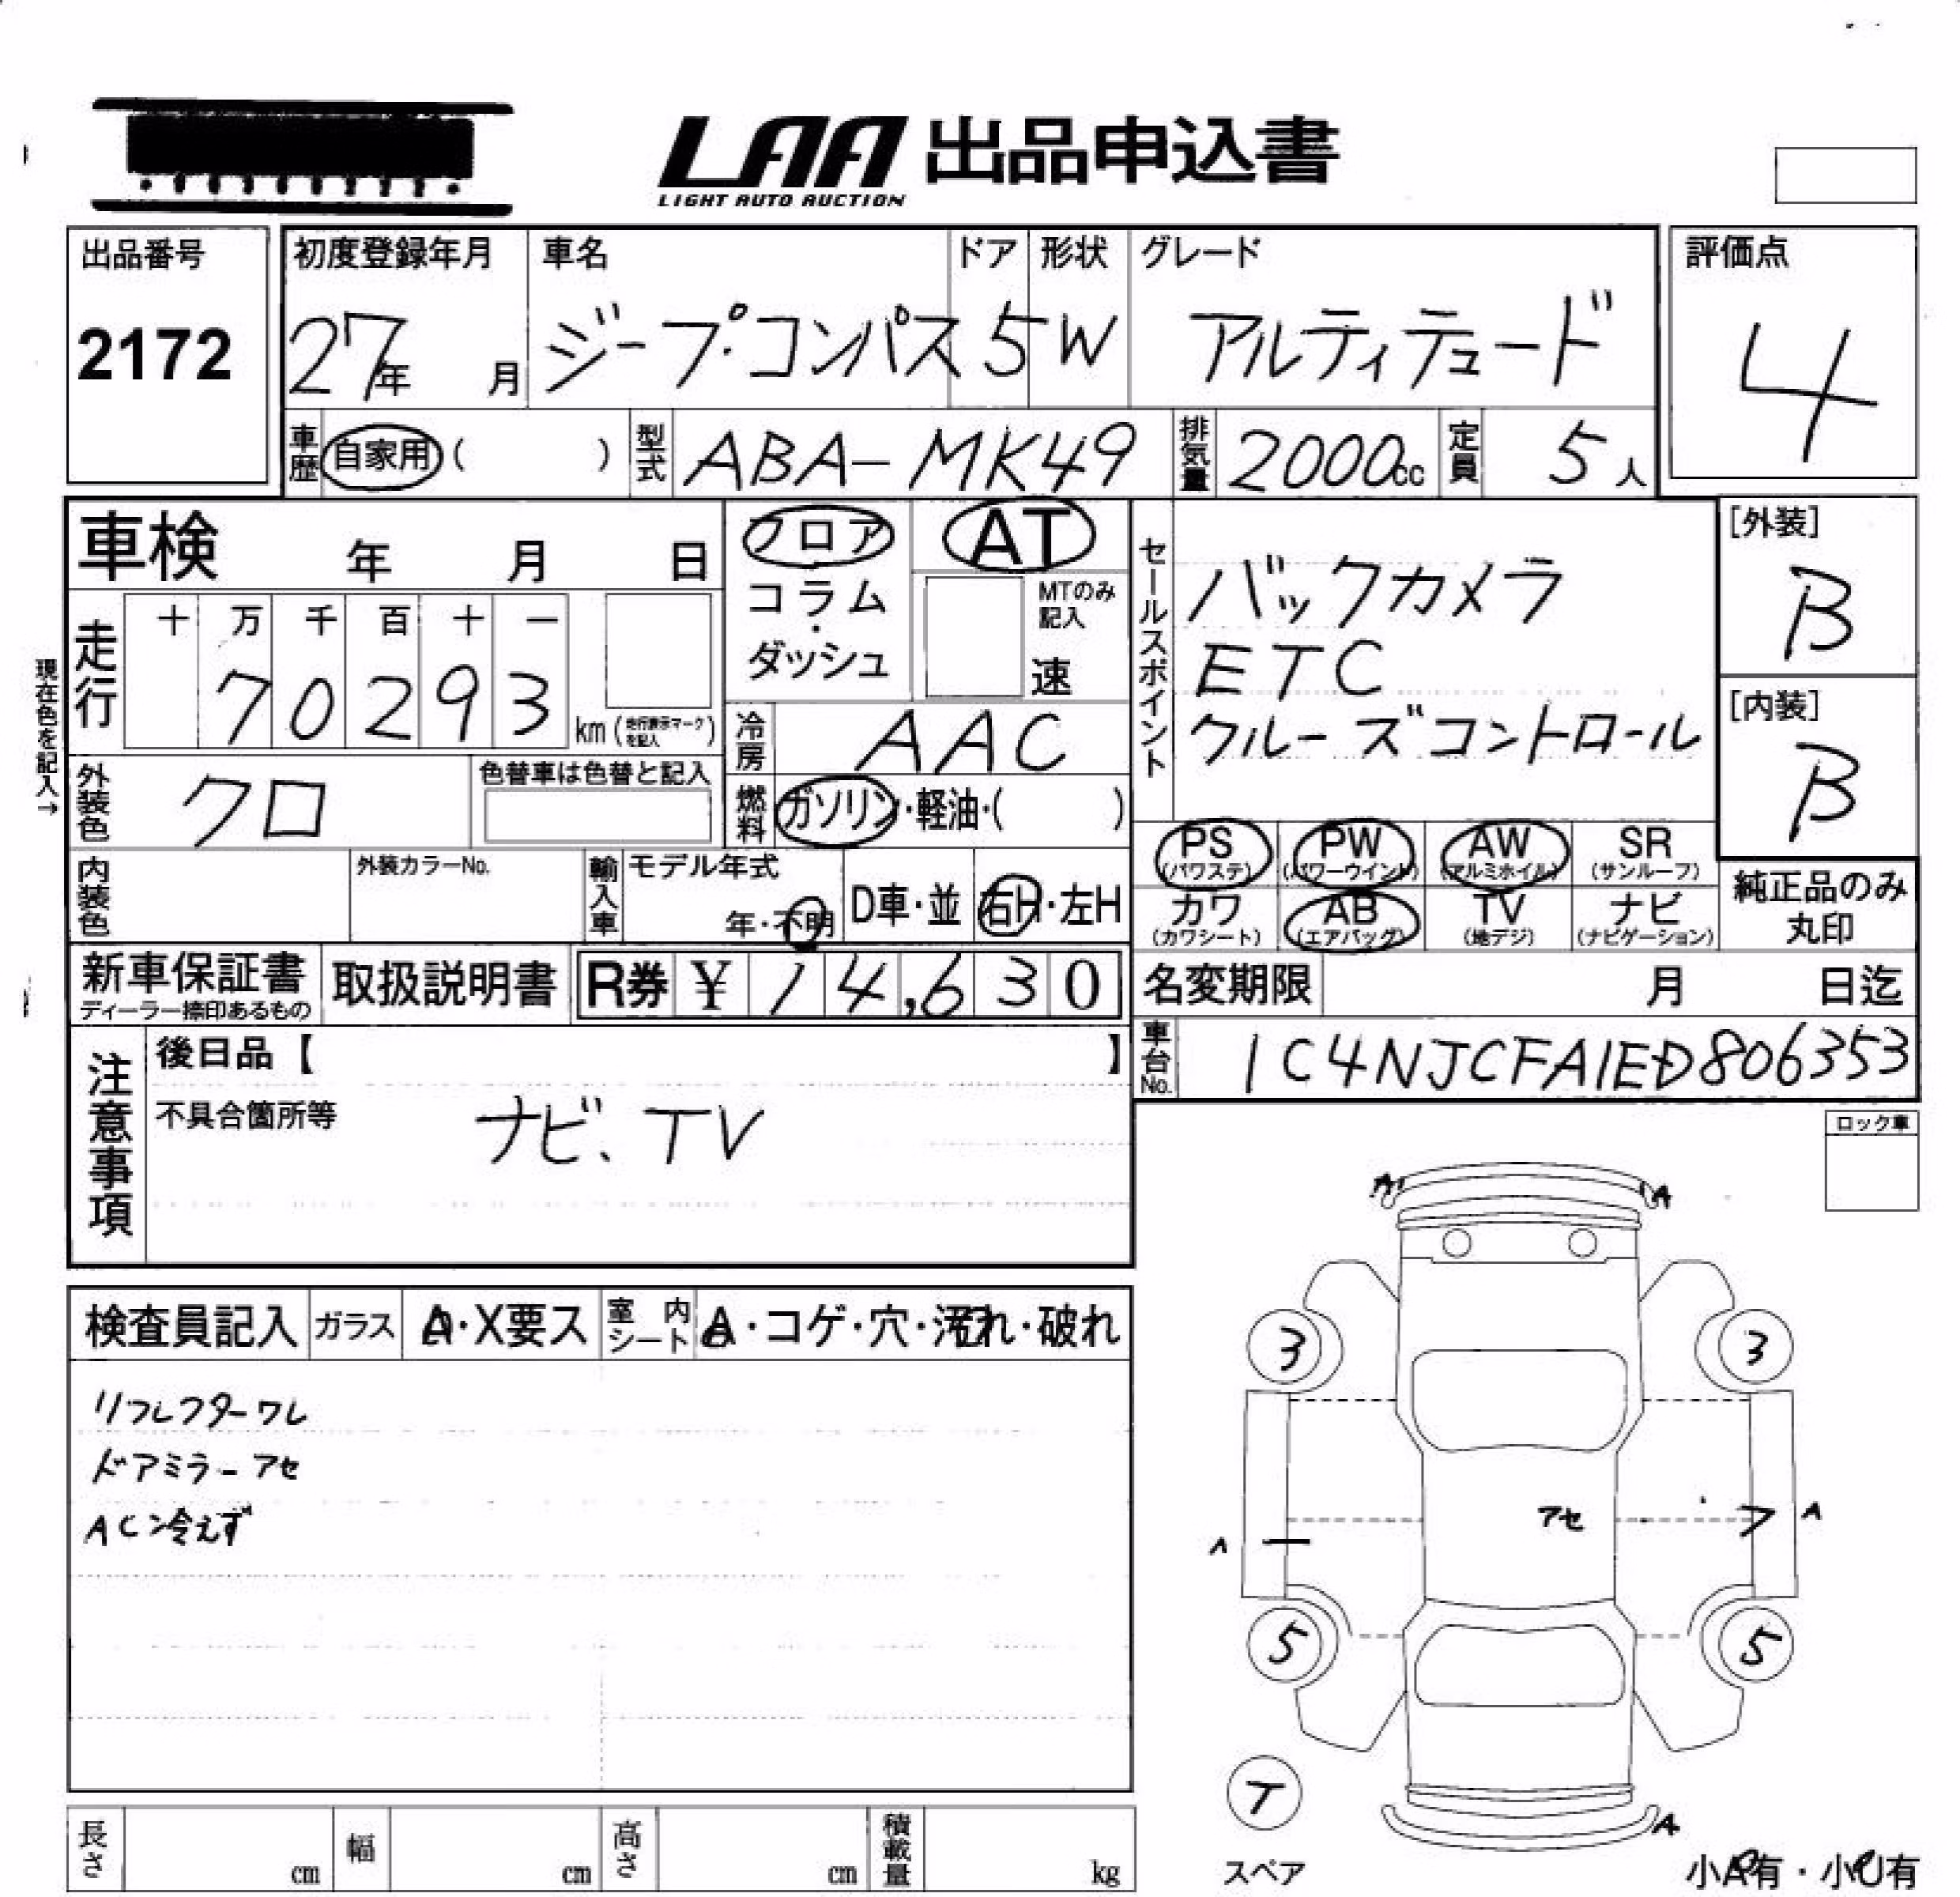 LAA 出品申込書
LIGHT AUTO AUCTION
出品番号
2172
初度登録年月
27年 月
車名
ジープ・コンパス
ドア
5
形状
W
グレード
アルティテュード
評価点
4
車歴 自家用 ( )
型式 ABA-MK49
排気量 2000cc
定員 5人
車検 年 月 日
フロア
コラム・ダッシュ
AT
MTのみ記入
速
セールスポイント
バックカメラ
ETC
クルーズコントロール
[外装]
B
[内装]
B
現在色を記入→
走行
十 万 千 百 十 一
7 0 2 9 3
km (走行表示マークを記入)
冷房 AAC
外装色 クロ
色替車は色替と記入
燃料 ガソリン・軽油・( )
PS (パワステ)
PW (パワーウインド)
AW (アルミホイル)
SR (サンルーフ)
カワ (カワシート)
AB (エアバッグ)
TV (地デジ)
ナビ (ナビゲーション)
純正品のみ丸印
内装色
外装カラーNo.
輸入車
モデル年式
年・不明
D車・並
右H・左H
新車保証書
ディーラー捺印あるもの
取扱説明書
R券 ¥ 14,630
名変期限 月 日迄
車台No. 1C4NJCFA1ED806353
注意事項
後日品【 】
不具合箇所等
ナビ、TV
ロック車
検査員記入
ガラス A・X要ス
室内シート A・コゲ・穴・汚れ・破れ
リフレクターワレ
ドアミラーアセ
AC冷えず
A A
3 3
アセ
A A
5 5
T
スペア
A
小A有・小U有
長さ cm
幅 cm
高さ cm
積載量 kg